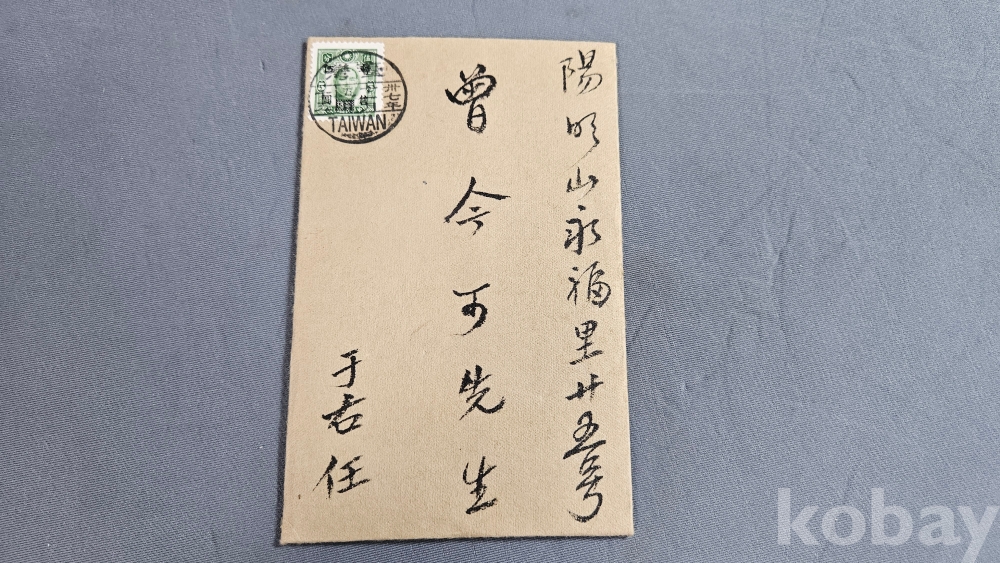 陽明山永福里廿五号
曾今可先生
于右任
卅七年
TAIWAN
kobay